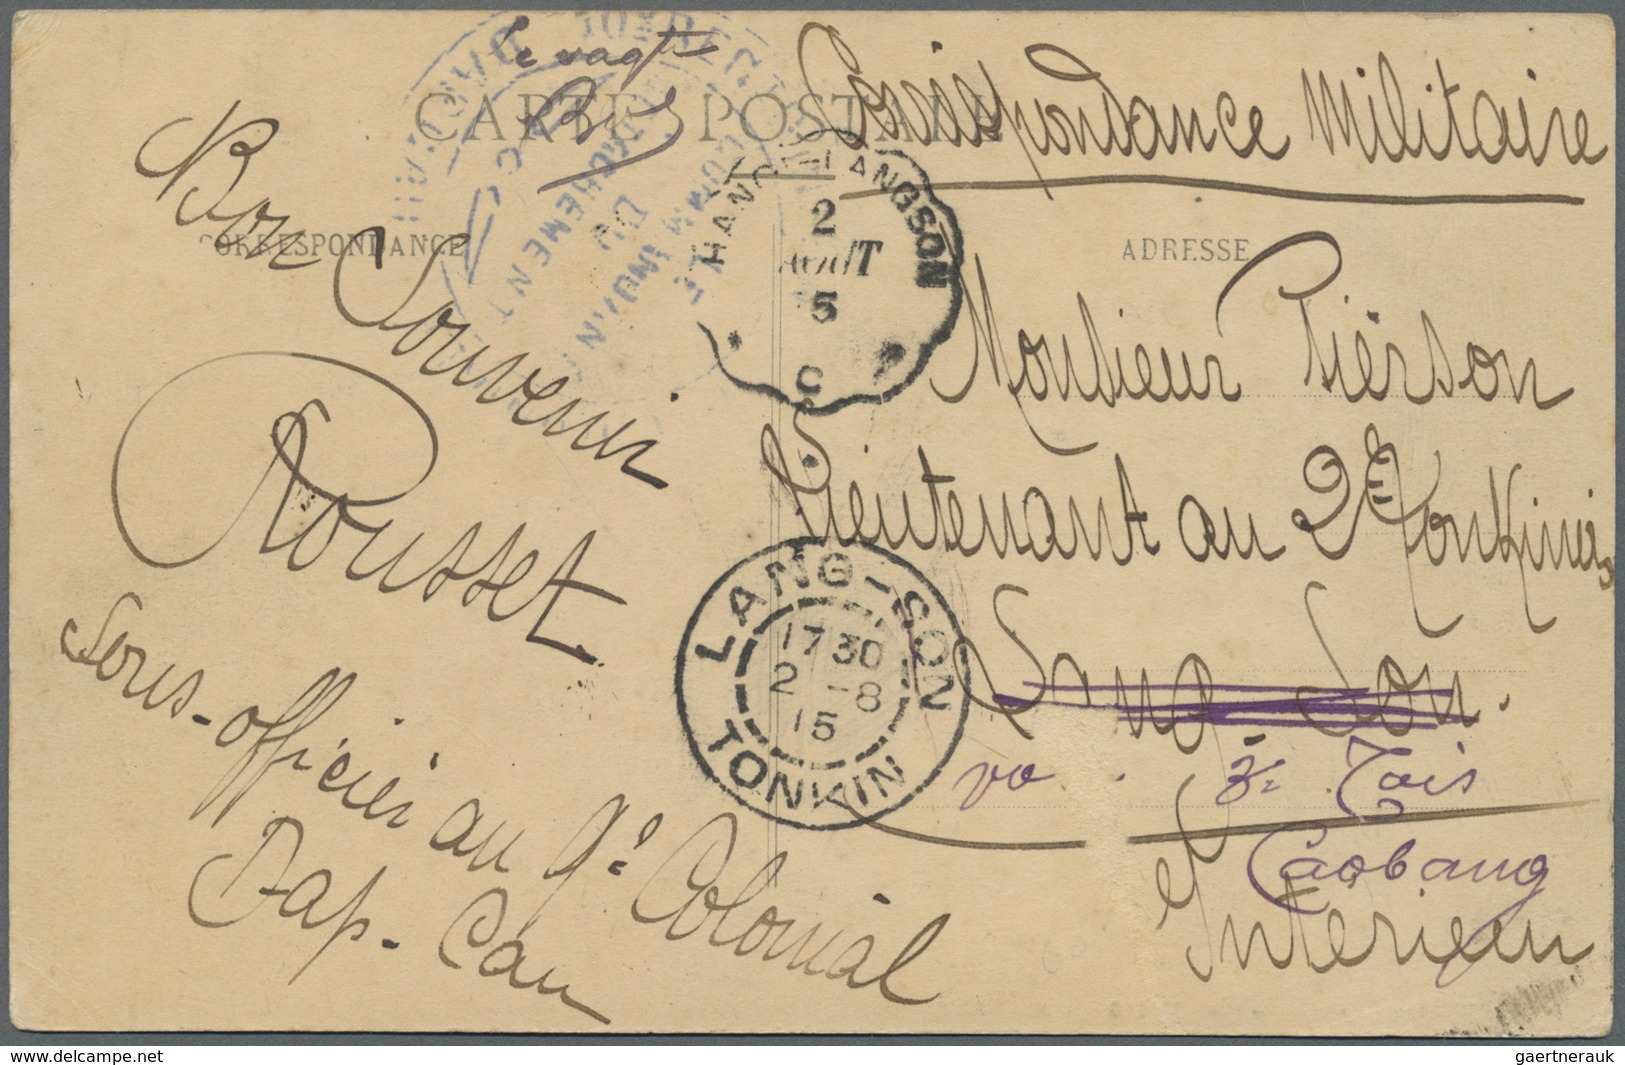 CARTE POSTALE
Correspondance Militaire
CORRESPONDANCE
ADRESSE
Bon Souvenir
Rousset
Sous-officier au 9e Colonial
Dap-Cau
Monsieur Pierson
Lieutenant au 2e Tonkinois
Lang Son.
3e Tais
Caobang
Intérieur
HANOI-LANGSON
2
AOUT
15
C
LANG-SON
17 30
2 -8
15
TONKIN
DÉTACHEMENT
DU
delcampe.net
gaertnerauk